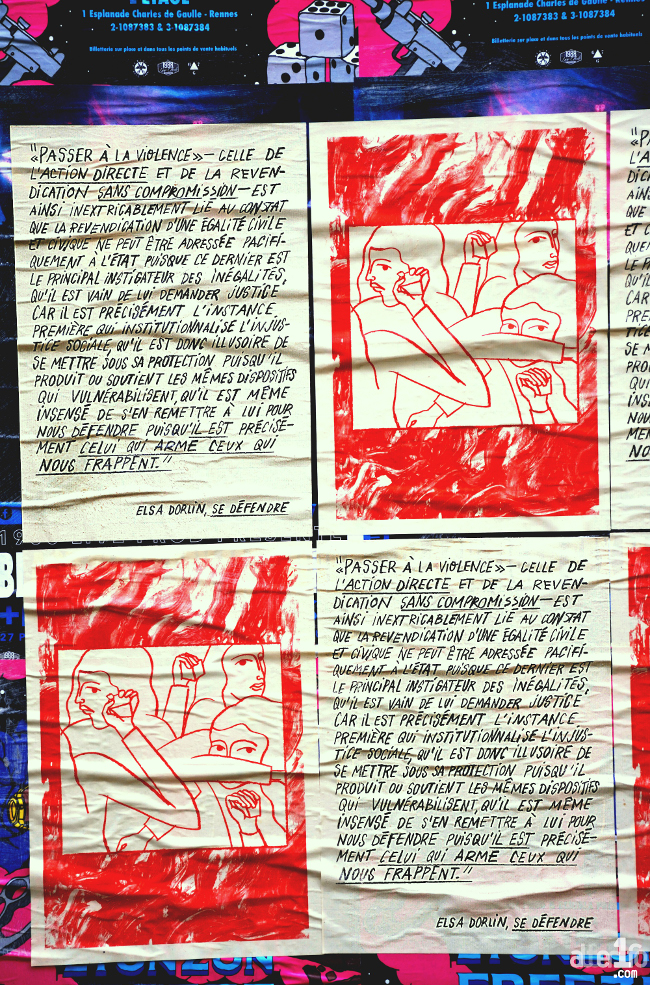 1 Esplanade Charles de Gaulle - Rennes
2-1087383 & 3-1087384
Billetterie sur place et dans tous les points de vente habituels
1988
1 Esplanade Charles de Gaulle - Rennes
2-1087383 & 3-1087384
Billetterie sur place et dans tous les points de vente habituels
1988
"«PASSER À LA VIOLENCE» — CELLE DE
L'ACTION DIRECTE ET DE LA REVEN-
DICATION SANS COMPROMISSION — EST
AINSI INEXTRICABLEMENT LIÉ AU CONSTAT
QUE LA REVENDICATION D'UNE ÉGALITÉ CIVILE
ET CIVIQUE NE PEUT ÊTRE ADRESSÉE PACIFI-
QUEMENT À L'ÉTAT PUISQUE CE DERNIER EST
LE PRINCIPAL INSTIGATEUR DES INÉGALITÉS,
QU'IL EST VAIN DE LUI DEMANDER JUSTICE
CAR IL EST PRÉCISÉMENT L'INSTANCE
PREMIÈRE QUI INSTITUTIONNALISE L'INJUS-
TICE SOCIALE, QU'IL EST DONC ILLUSOIRE DE
SE METTRE SOUS SA PROTECTION PUISQU'IL
PRODUIT OU SOUTIENT LES MÊMES DISPOSITIFS
QUI VULNÉRABILISENT, QU'IL EST MÊME
INSENSÉ DE S'EN REMETTRE À LUI POUR
NOUS DÉFENDRE PUISQU'IL EST PRÉCISÉ-
MENT CELUI QUI ARME CEUX QUI
NOUS FRAPPENT."
ELSA DORLIN, SE DÉFENDRE
"«PASSER À LA VIOLENCE» — CELLE DE
L'ACTION DIRECTE ET DE LA REVEN-
DICATION SANS COMPROMISSION — EST
AINSI INEXTRICABLEMENT LIÉ AU CONSTAT
QUE LA REVENDICATION D'UNE ÉGALITÉ CIVILE
ET CIVIQUE NE PEUT ÊTRE ADRESSÉE PACIFI-
QUEMENT À L'ÉTAT PUISQUE CE DERNIER EST
LE PRINCIPAL INSTIGATEUR DES INÉGALITÉS,
QU'IL EST VAIN DE LUI DEMANDER JUSTICE
CAR IL EST PRÉCISÉMENT L'INSTANCE
PREMIÈRE QUI INSTITUTIONNALISE L'INJUS-
TICE SOCIALE, QU'IL EST DONC ILLUSOIRE DE
SE METTRE SOUS SA PROTECTION PUISQU'IL
PRODUIT OU SOUTIENT LES MÊMES DISPOSITIFS
QUI VULNÉRABILISENT, QU'IL EST MÊME
INSENSÉ DE S'EN REMETTRE À LUI POUR
NOUS DÉFENDRE PUISQU'IL EST PRÉCISÉ-
MENT CELUI QUI ARME CEUX QUI
NOUS FRAPPENT."
ELSA DORLIN, SE DÉFENDRE
.com